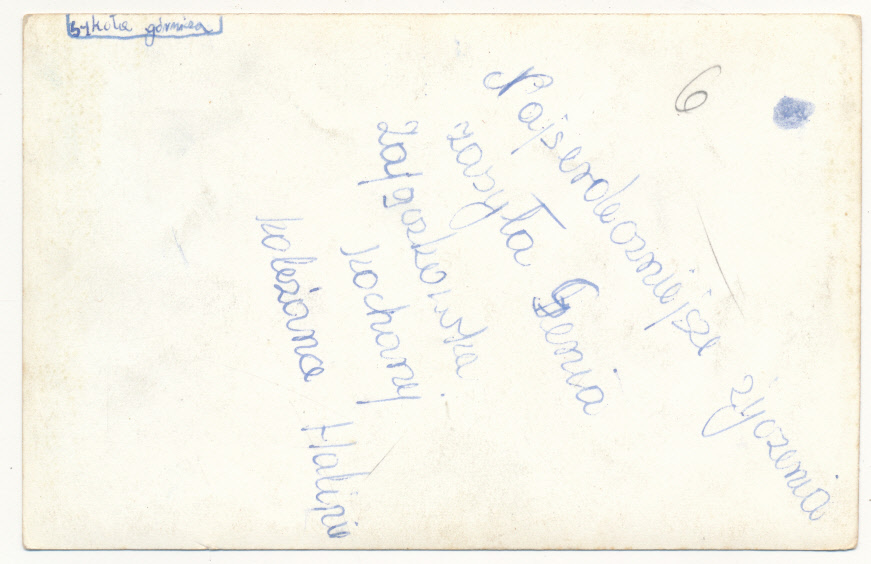 górnicza
6
Najserdeczniejsze życzenia
zasyła Genia
Zajączkowska
kochanej
koleżance Halinie